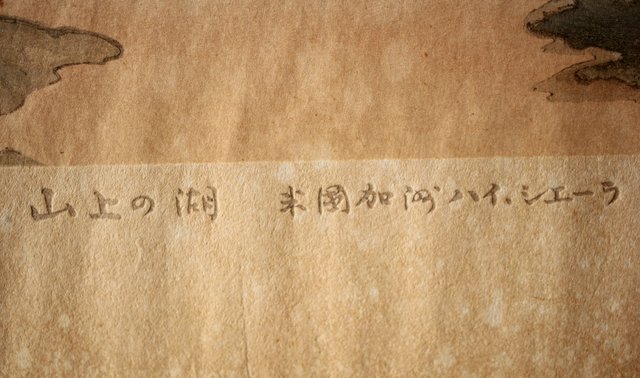 山上の湖　米國加州ハイ、シエーラ